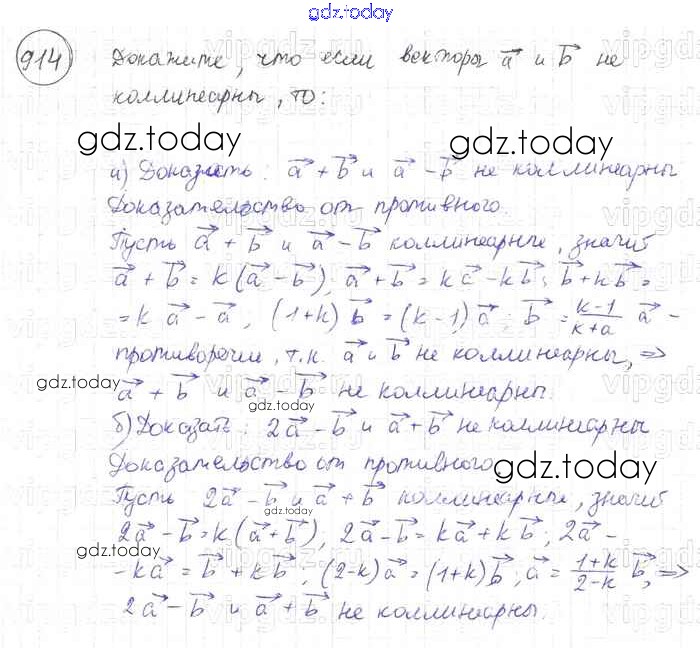 gdz.today
914 Докажите, что если векторы a⃗ и b⃗ не
коллинеарны, то:
gdz.today gdz.today
а) Доказать: a⃗ + b⃗ и a⃗ - b⃗ не коллинеарны
Доказательство от противного.
Пусть a⃗ + b⃗ и a⃗ - b⃗ коллинеарные, значит
a⃗ + b⃗ = k(a⃗ - b⃗); a⃗ + b⃗ = ka⃗ - kb⃗; b⃗ + kb⃗ =
= ka⃗ - a⃗; (1+k)b⃗ = (k-1)a⃗ b⃗ = (k-1)/(k+a) a⃗ -
противоречие, т.к. a⃗ и b⃗ не коллинеарны, ⇒
gdz.today gdz.today
a⃗ + b⃗ и a⃗ - b⃗ не коллинеарны.
gdz.today
б) Доказать: 2a⃗ - b⃗ и a⃗ + b⃗ не коллинеарны
Доказательство от противного.
gdz.today
Пусть 2a⃗ - b⃗ и a⃗ + b⃗ коллинеарные, значит
gdz.today
2a⃗ - b⃗ = k(a⃗ + b⃗); 2a⃗ - b⃗ = ka⃗ + kb⃗; 2a⃗ -
gdz.today
- ka⃗ = b⃗ + kb⃗; (2-k)a⃗ = (1+k)b⃗; a⃗ = (1+k)/(2-k) b⃗, ⇒
gdz.today
2a⃗ - b⃗ и a⃗ + b⃗ не коллинеарны.